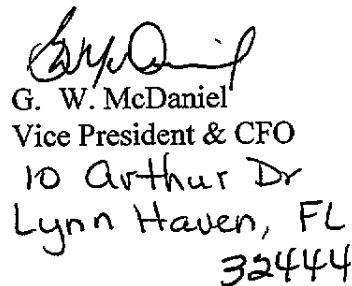 G. W. McDaniel
Vice President & CFO
10 Arthur Dr
Lynn Haven, FL
32444